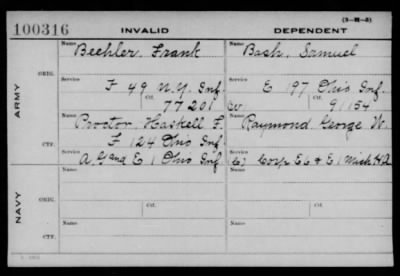 (3—111—3)
100316 INVALID DEPENDENT
ARMY
NAVY
ORIG.
CTF.
ORIG.
CTF.
Name Beehler, Frank
Service F 49 N.Y. Inf.
Ctf. 77201
Name Proctor, Haskell F.
F 124 Ohio Inf.
Service A, G and E 1 Ohio Inf
Name
Ctf.
Service
Name
Name Bash, Samuel
Service E 197 Ohio Inf.
Ctf. 91154
Name Raymond George W.
Service Corp E 6 & E 1 Mich H.A
Name
Ctf.
Service
Name